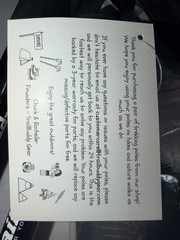 Thank you for purchasing a pair of trekking poles from our shop!
We hope you enjoy using your poles on hikes and nature walks as
much as we do.
If you ever have any questions or issues with your poles, please
don't hesitate to email us at customercare@trailbuddygear.com
and we will personally get back to you within 24 hours. This is the
fastest way to reach us to solve any problem. Your poles are
backed by a 3-year warranty for parts, and we will replace any
missing/defective parts for free.
Enjoy the great outdoors!
Chuck & Rachelle
Founders - TrailBuddy Gear